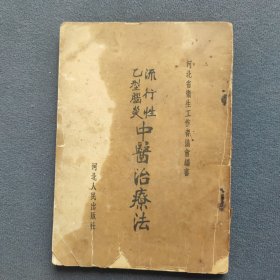 河北省衛生工作者協會編審
流行性
乙型腦炎
中醫治療法
河北人民出版社